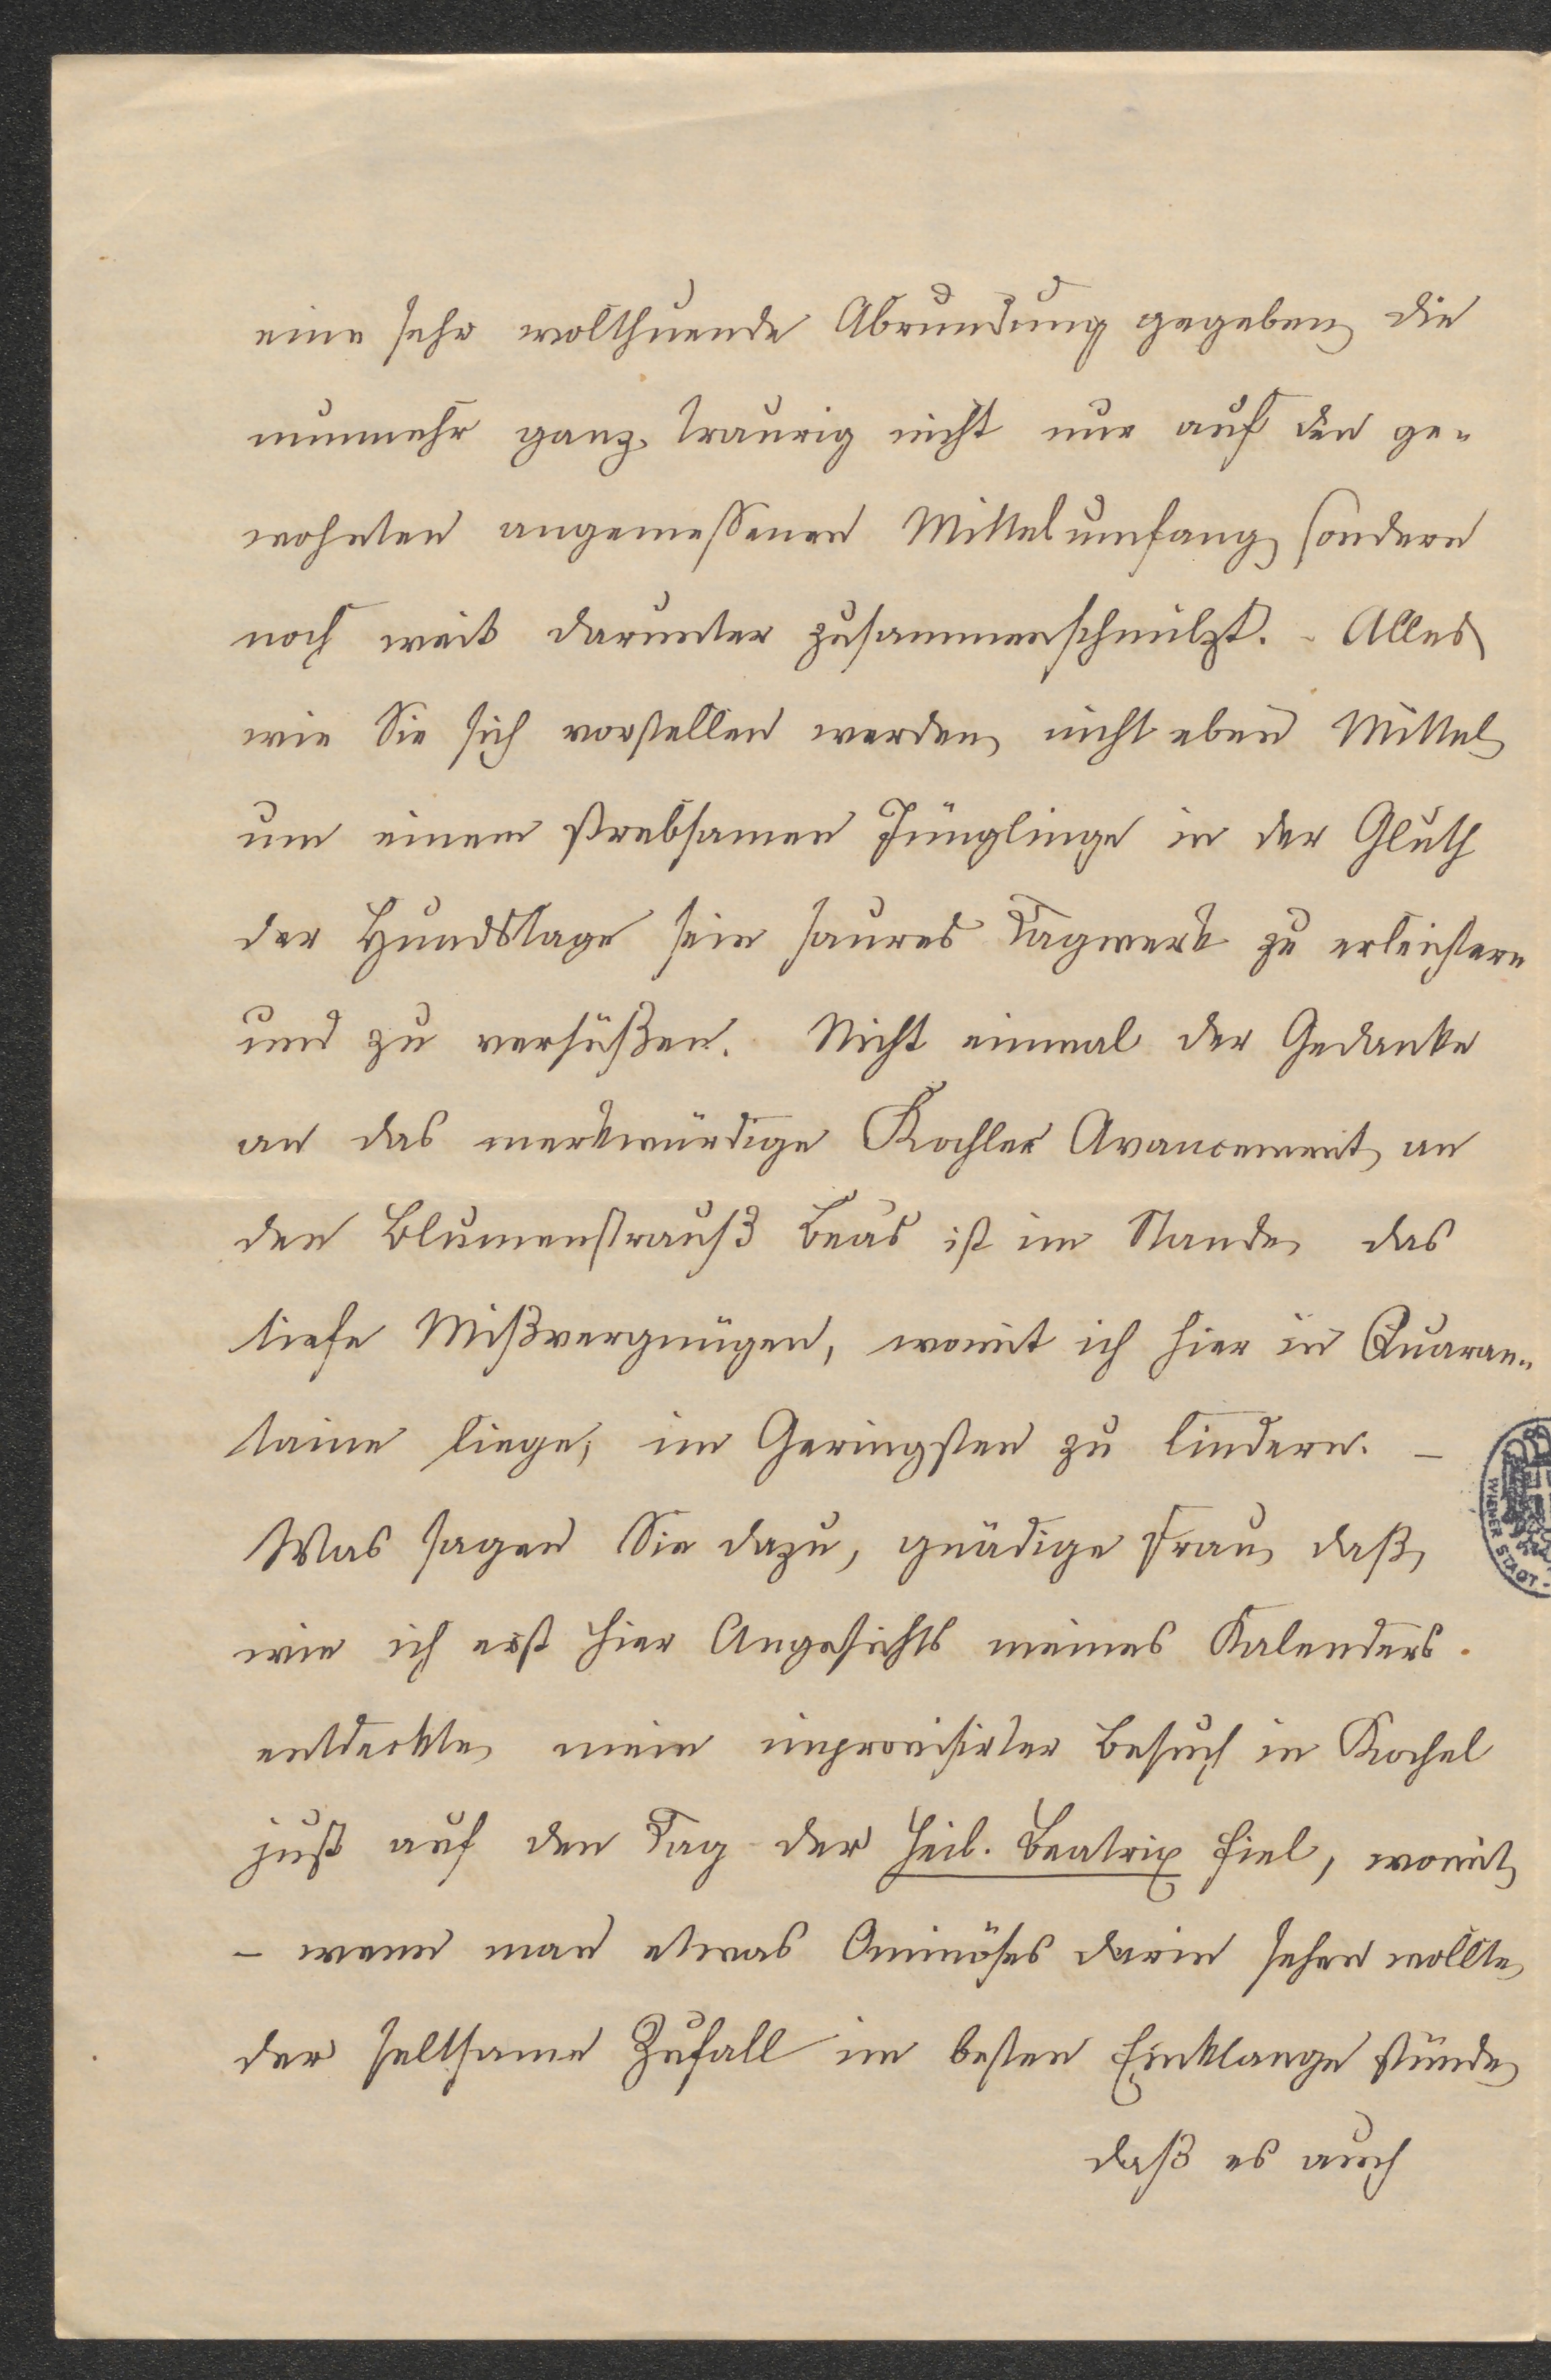 eine sehr wolthuende Abrundung gegeben, die
nunmehr ganz traurig nicht nur auf den ge-
wohnten angemessenen Mittelumfang, sondern
noch weit darunter zusammenschmilzt. - Alles,
wie Sie sich vorstellen werden, nicht eben Mittel,
um einem strebsamen Jünglinge in der Gluth
der Hundstage sein saures Tagwerk zu erleichtern
und zu versüßen. Nicht einmal der Gedanke
an das merkwürdige Kochler Avancement, an
den Blumenstrauß Beas ist im Stande, das
tiefe Mißvergnügen, womit ich hier in Quaran-
taine liege, im Geringsten zu lindern. –
Was sagen Sie dazu, gnädige Frau, daß,
wie ich erst hier Angesichts meines Kalenders
entdeckte, mein improvisirter Besuch in Kochel
just auf den Tag der heil. Beatrix fiel, womit,
– wenn man etwas Ominöses darin sehen wollte,
der seltsame Zufall im besten Einklange stünde,
daß es auch
WIENER STADT-